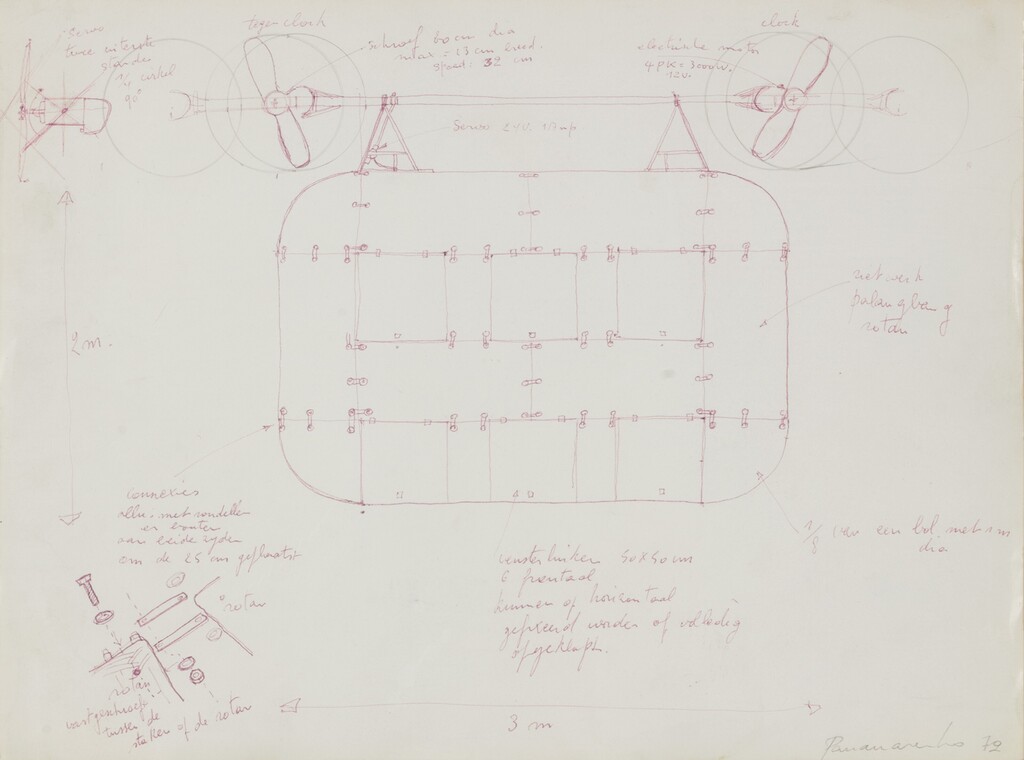 servo
twee uiterste
standen
1/4 cirkel
90°
tegen clock
schroef 60 cm dia
max = 13 cm breed.
spoed: 32 cm
clock
electrische motor
4 PK = 3000W.
12V.
Servo 24V.
2 m.
netwerk
rotan
connexies
allu. met rondellen
en bouten
aan beide zijden
om de 25 cm geplaatst
rotan
rotan
vastgeschroefd
tussen de
staken of de rotan
vensterluiken 50x50 cm
6 frontaal
kunnen of horizontaal
gefixeerd worden of volledig
opgeklapt.
1/8 van een bol met 1 m
dia
3 m
Panamarenko 72